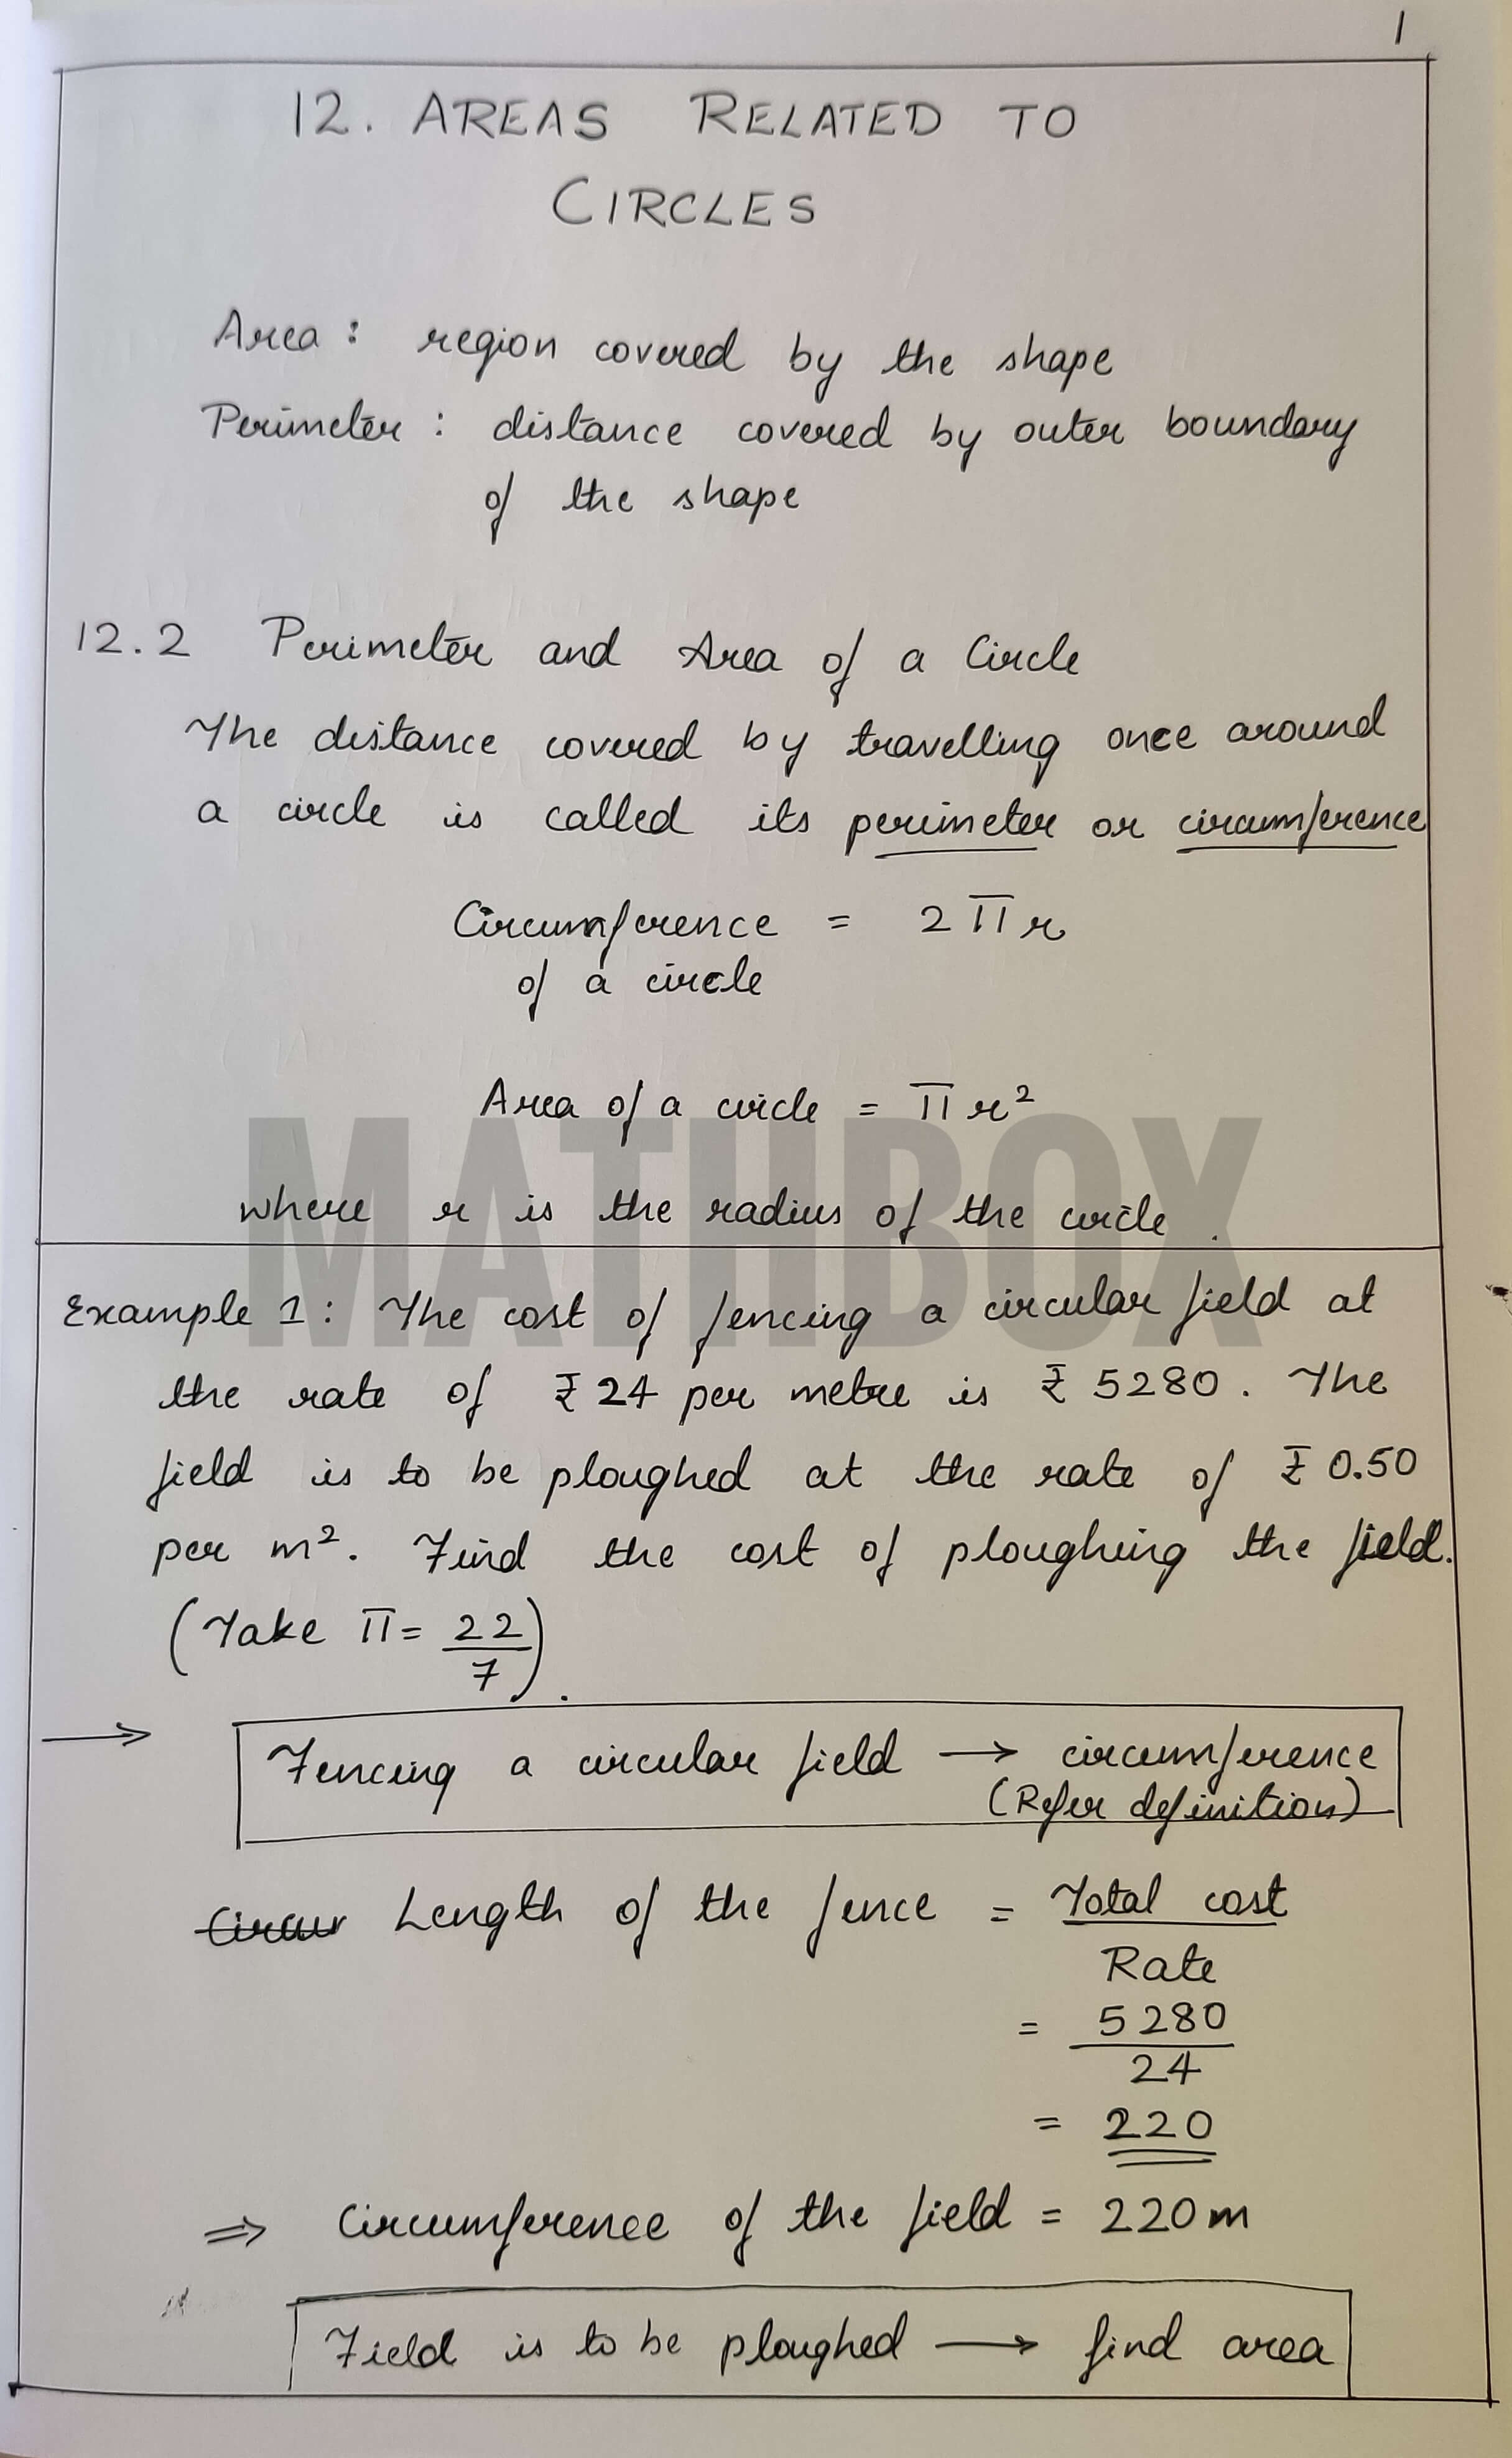 1
12. AREAS RELATED TO
CIRCLES
Area : region covered by the shape
Perimeter : distance covered by outer boundary
of the shape
12.2 Perimeter and Area of a Circle
The distance covered by travelling once around
a circle is called its perimeter or circumference
Circumference = 2 π r
of a circle
Area of a circle = π r²
where r is the radius of the circle .
MATHBOX
Example 1 : The cost of fencing a circular field at
the rate of ₹ 24 per metre is ₹ 5280 . The
field is to be ploughed at the rate of ₹ 0.50
per m². Find the cost of ploughing the field.
(Take π = 22/7).
→ Fencing a circular field → circumference
(Refer definition)
Circur Length of the fence = Total cost
Rate
= 5280
24
= 220
⇒ Circumference of the field = 220 m
Field is to be ploughed → find area